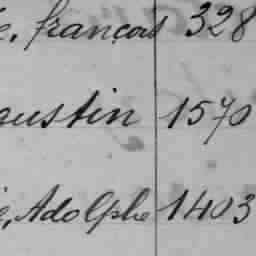 e, françois 328
gustin 1570
e, Adolphe 1403